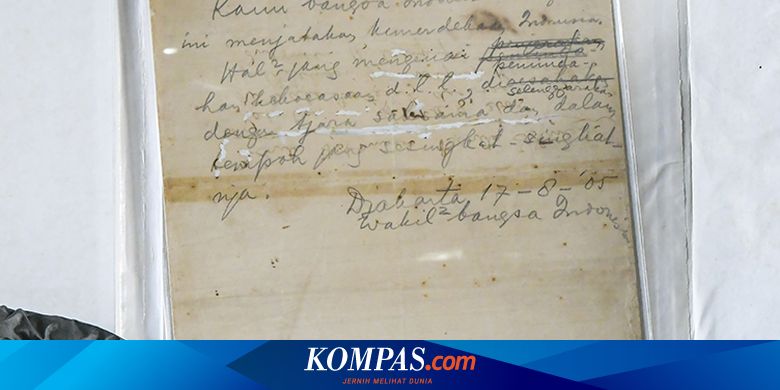 Kami bangsa Indon
ini menjatakan kemerdekaan Indonesia.
Hal² jang mengenai penjerahan
peminda-
han kekoeasaan d.l.l., dioesahakan
selenggarakan
dengan tjara saksama dan dalam
tempoh jang sesingkat-singkat-
nja.
Djakarta 17-8-'05
Wakil²-bangsa Indonesia
KOMPAS.com
JERNIH MELIHAT DUNIA